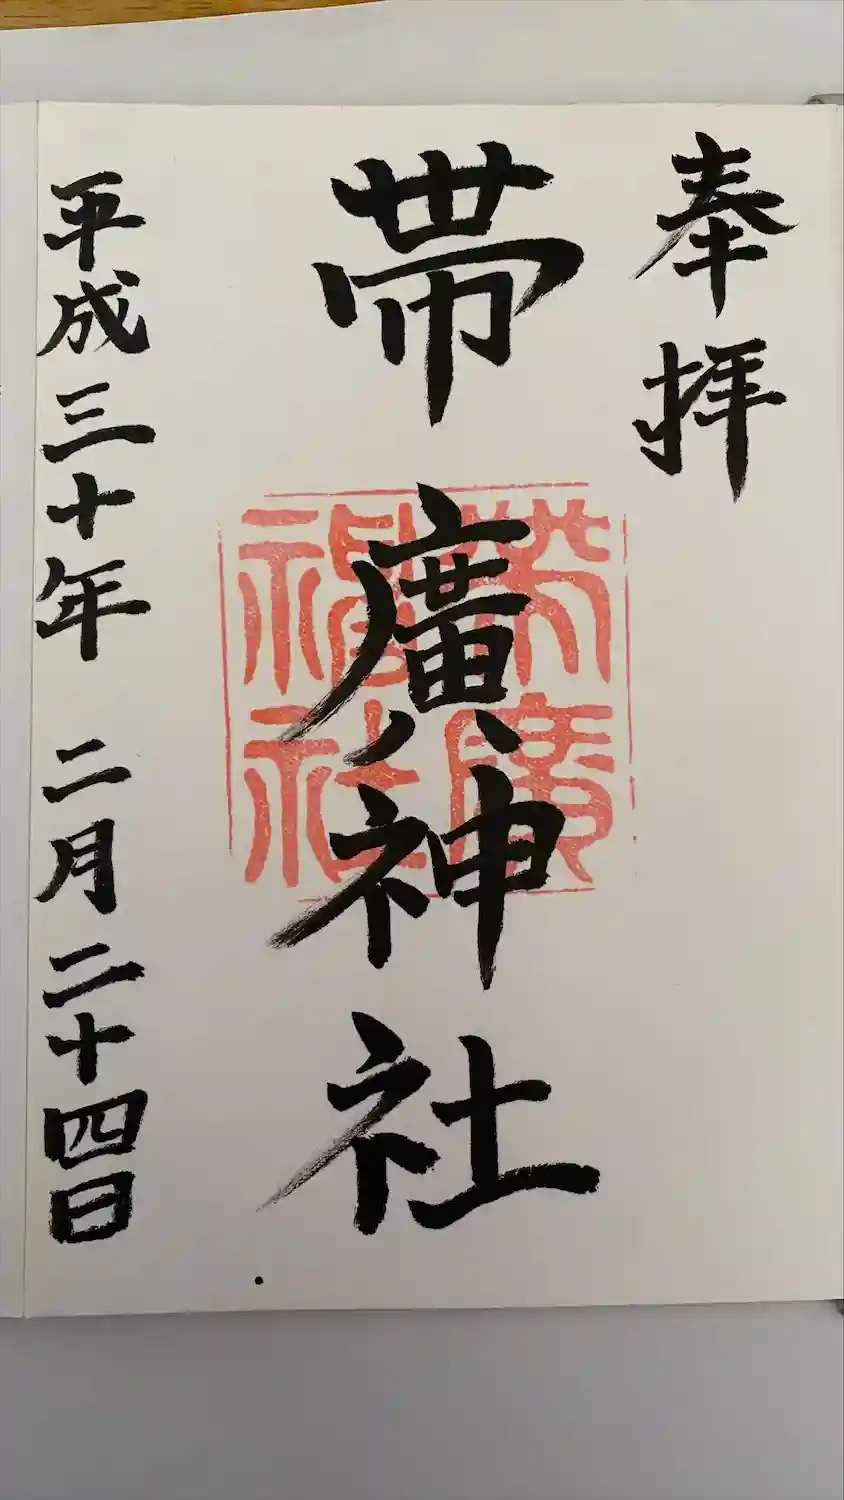 奉拝
帯廣神社
平成三十年 二月二十四日
帯廣神社